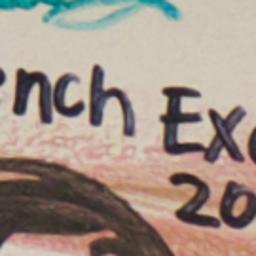 ench Exc
20